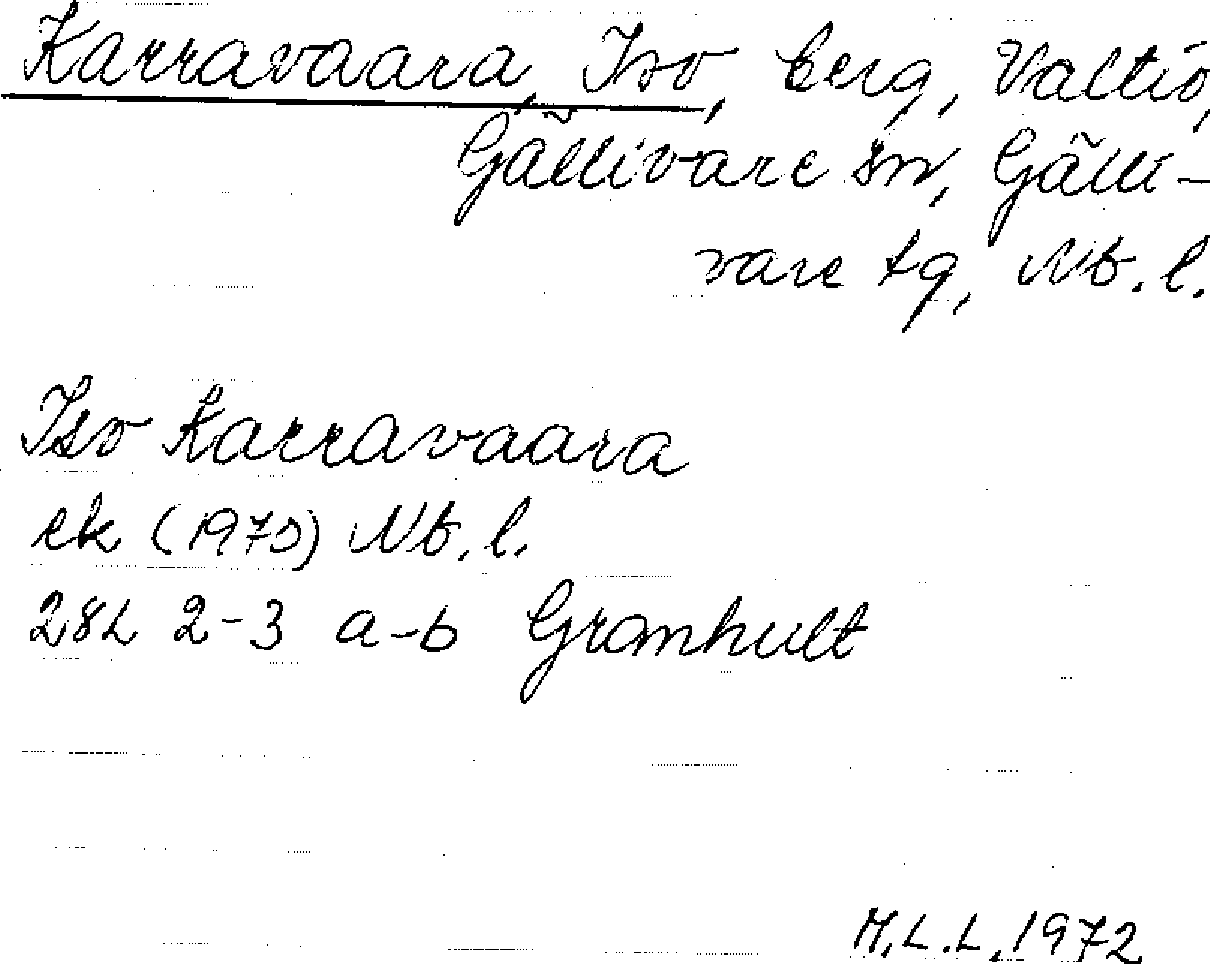 Karravaara, Iso, berg, Valtio,
Gällivare sn, Gälli-
vare tg, Nb. l.
Iso Karravaara
ek (1970) Nb. l.
28L 2-3 a-b Granhult
M.L.L. 1972